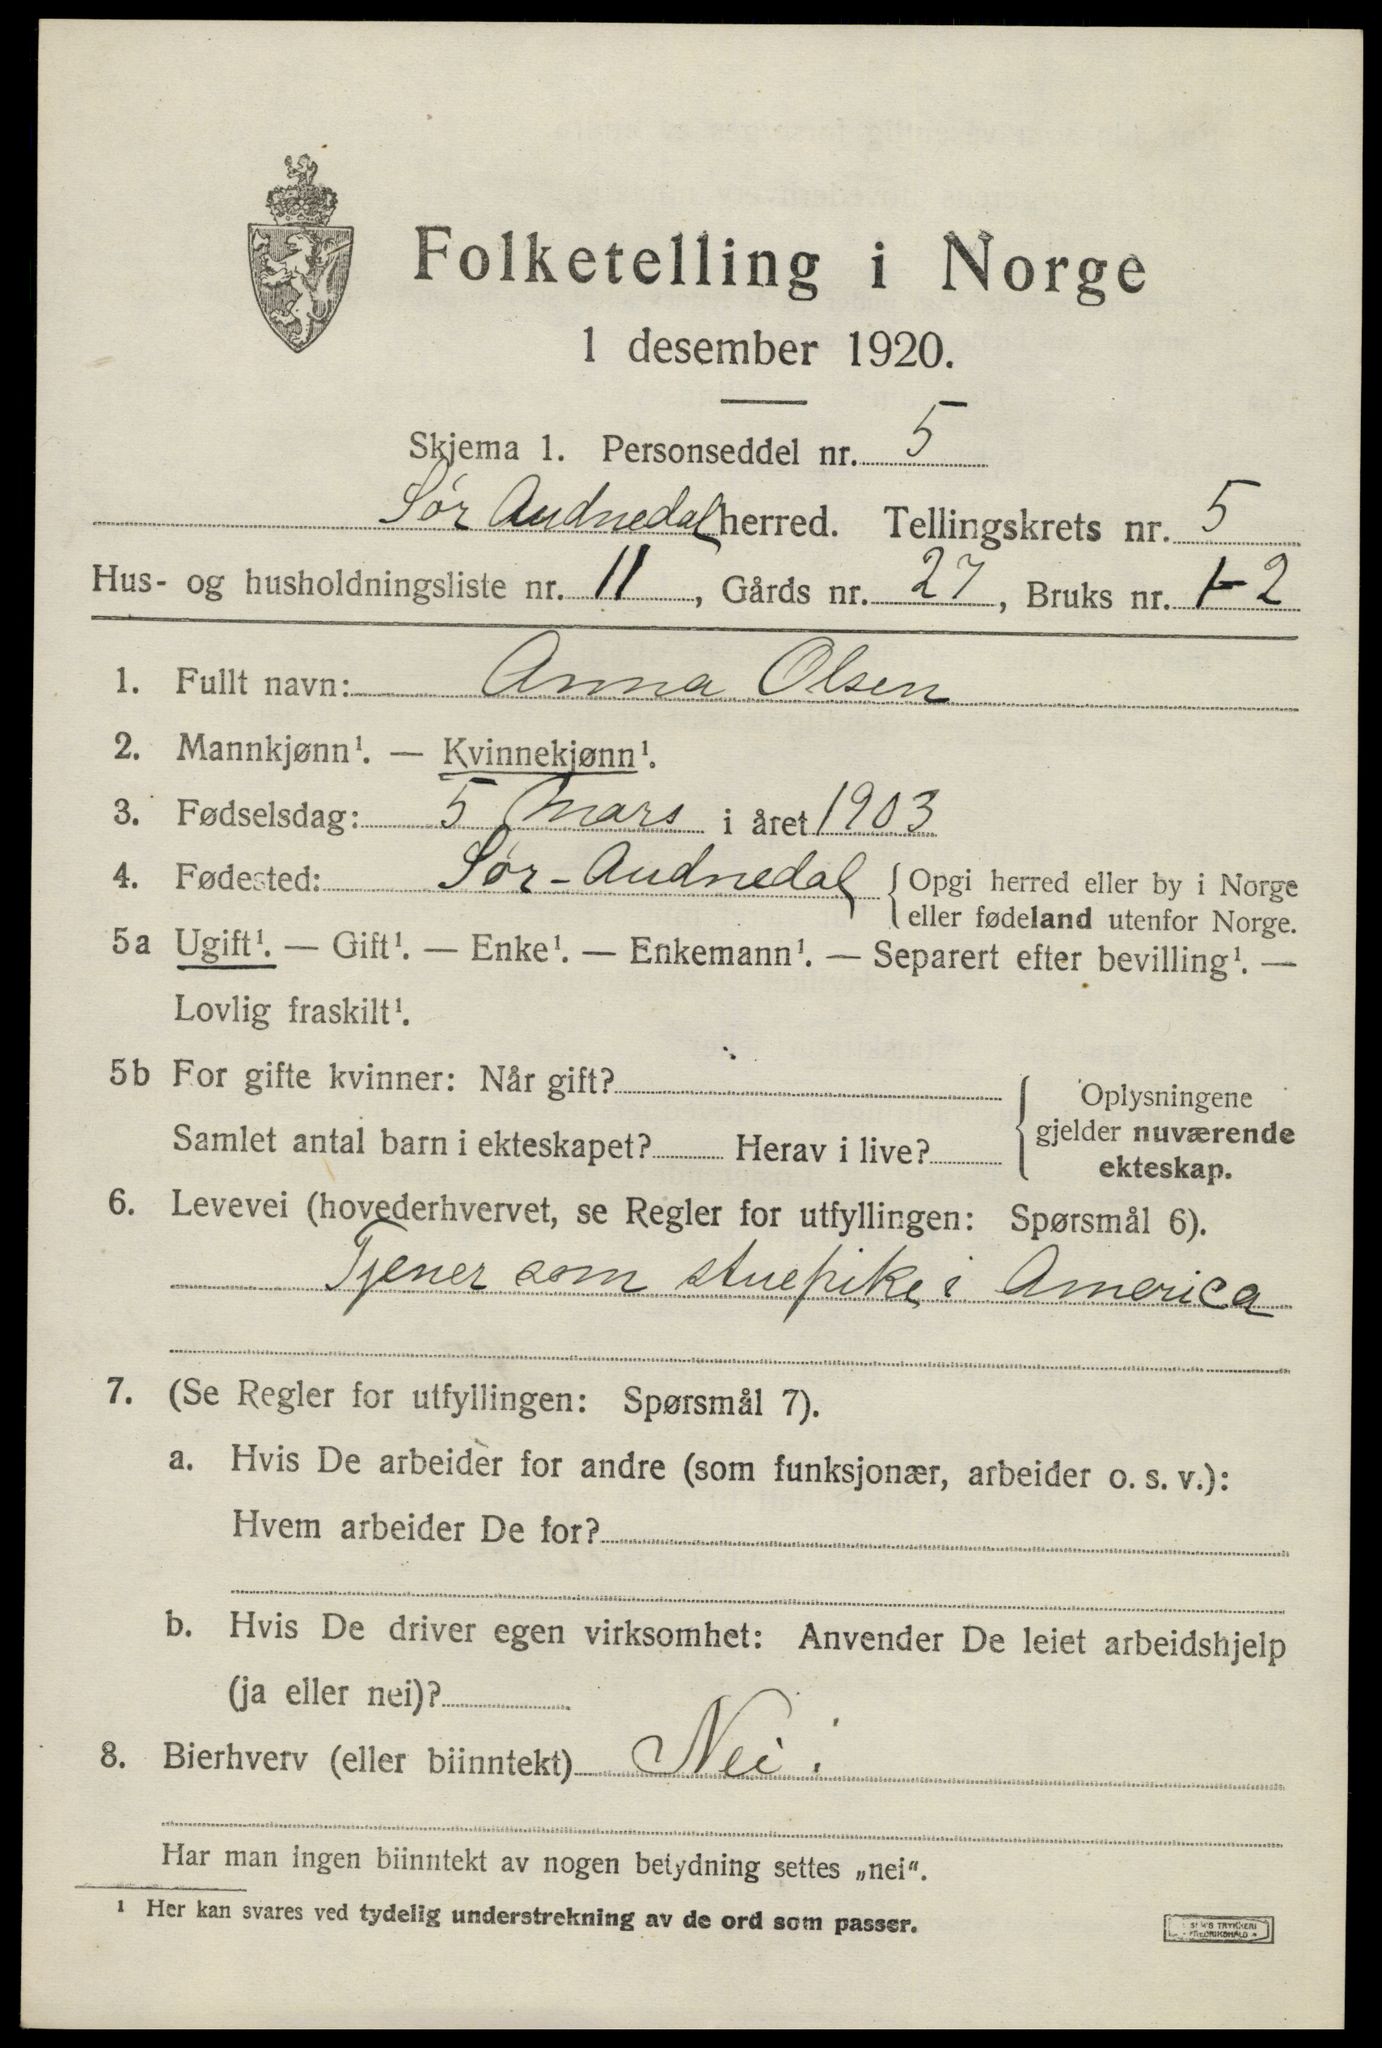 Folketelling i Norge
1 desember 1920.
Skjema 1. Personseddel nr. 5
Sør Audnedal herred. Tellingskrets nr. 5
Hus- og husholdningsliste nr. 11, Gårds nr. 27, Bruks nr. 1-2
1. Fullt navn: Anna Olsen
2. Mannkjønn¹. — Kvinnekjønn¹.
3. Fødselsdag: 5 Mars i året 1903
4. Fødested: Sør-Audnedal { Opgi herred eller by i Norge
eller fødeland utenfor Norge.
5a Ugift¹. — Gift¹. — Enke¹. — Enkemann¹. — Separert efter bevilling¹. —
Lovlig fraskilt¹.
5b For gifte kvinner: Når gift?
Samlet antal barn i ekteskapet? Herav i live?
Oplysningene
gjelder nuværende
ekteskap.
6. Levevei (hovederhvervet, se Regler for utfyllingen: Spørsmål 6).
Tjener som stuepike i America
7. (Se Regler for utfyllingen: Spørsmål 7).
a. Hvis De arbeider for andre (som funksjonær, arbeider o. s. v.):
Hvem arbeider De for?
b. Hvis De driver egen virksomhet: Anvender De leiet arbeidshjelp
(ja eller nei)?
8. Bierhverv (eller biinntekt) Nei
Har man ingen biinntekt av nogen betydning settes „nei“.
¹ Her kan svares ved tydelig understrekning av de ord som passer.
TRYKKERI
FREDRIKSHALD